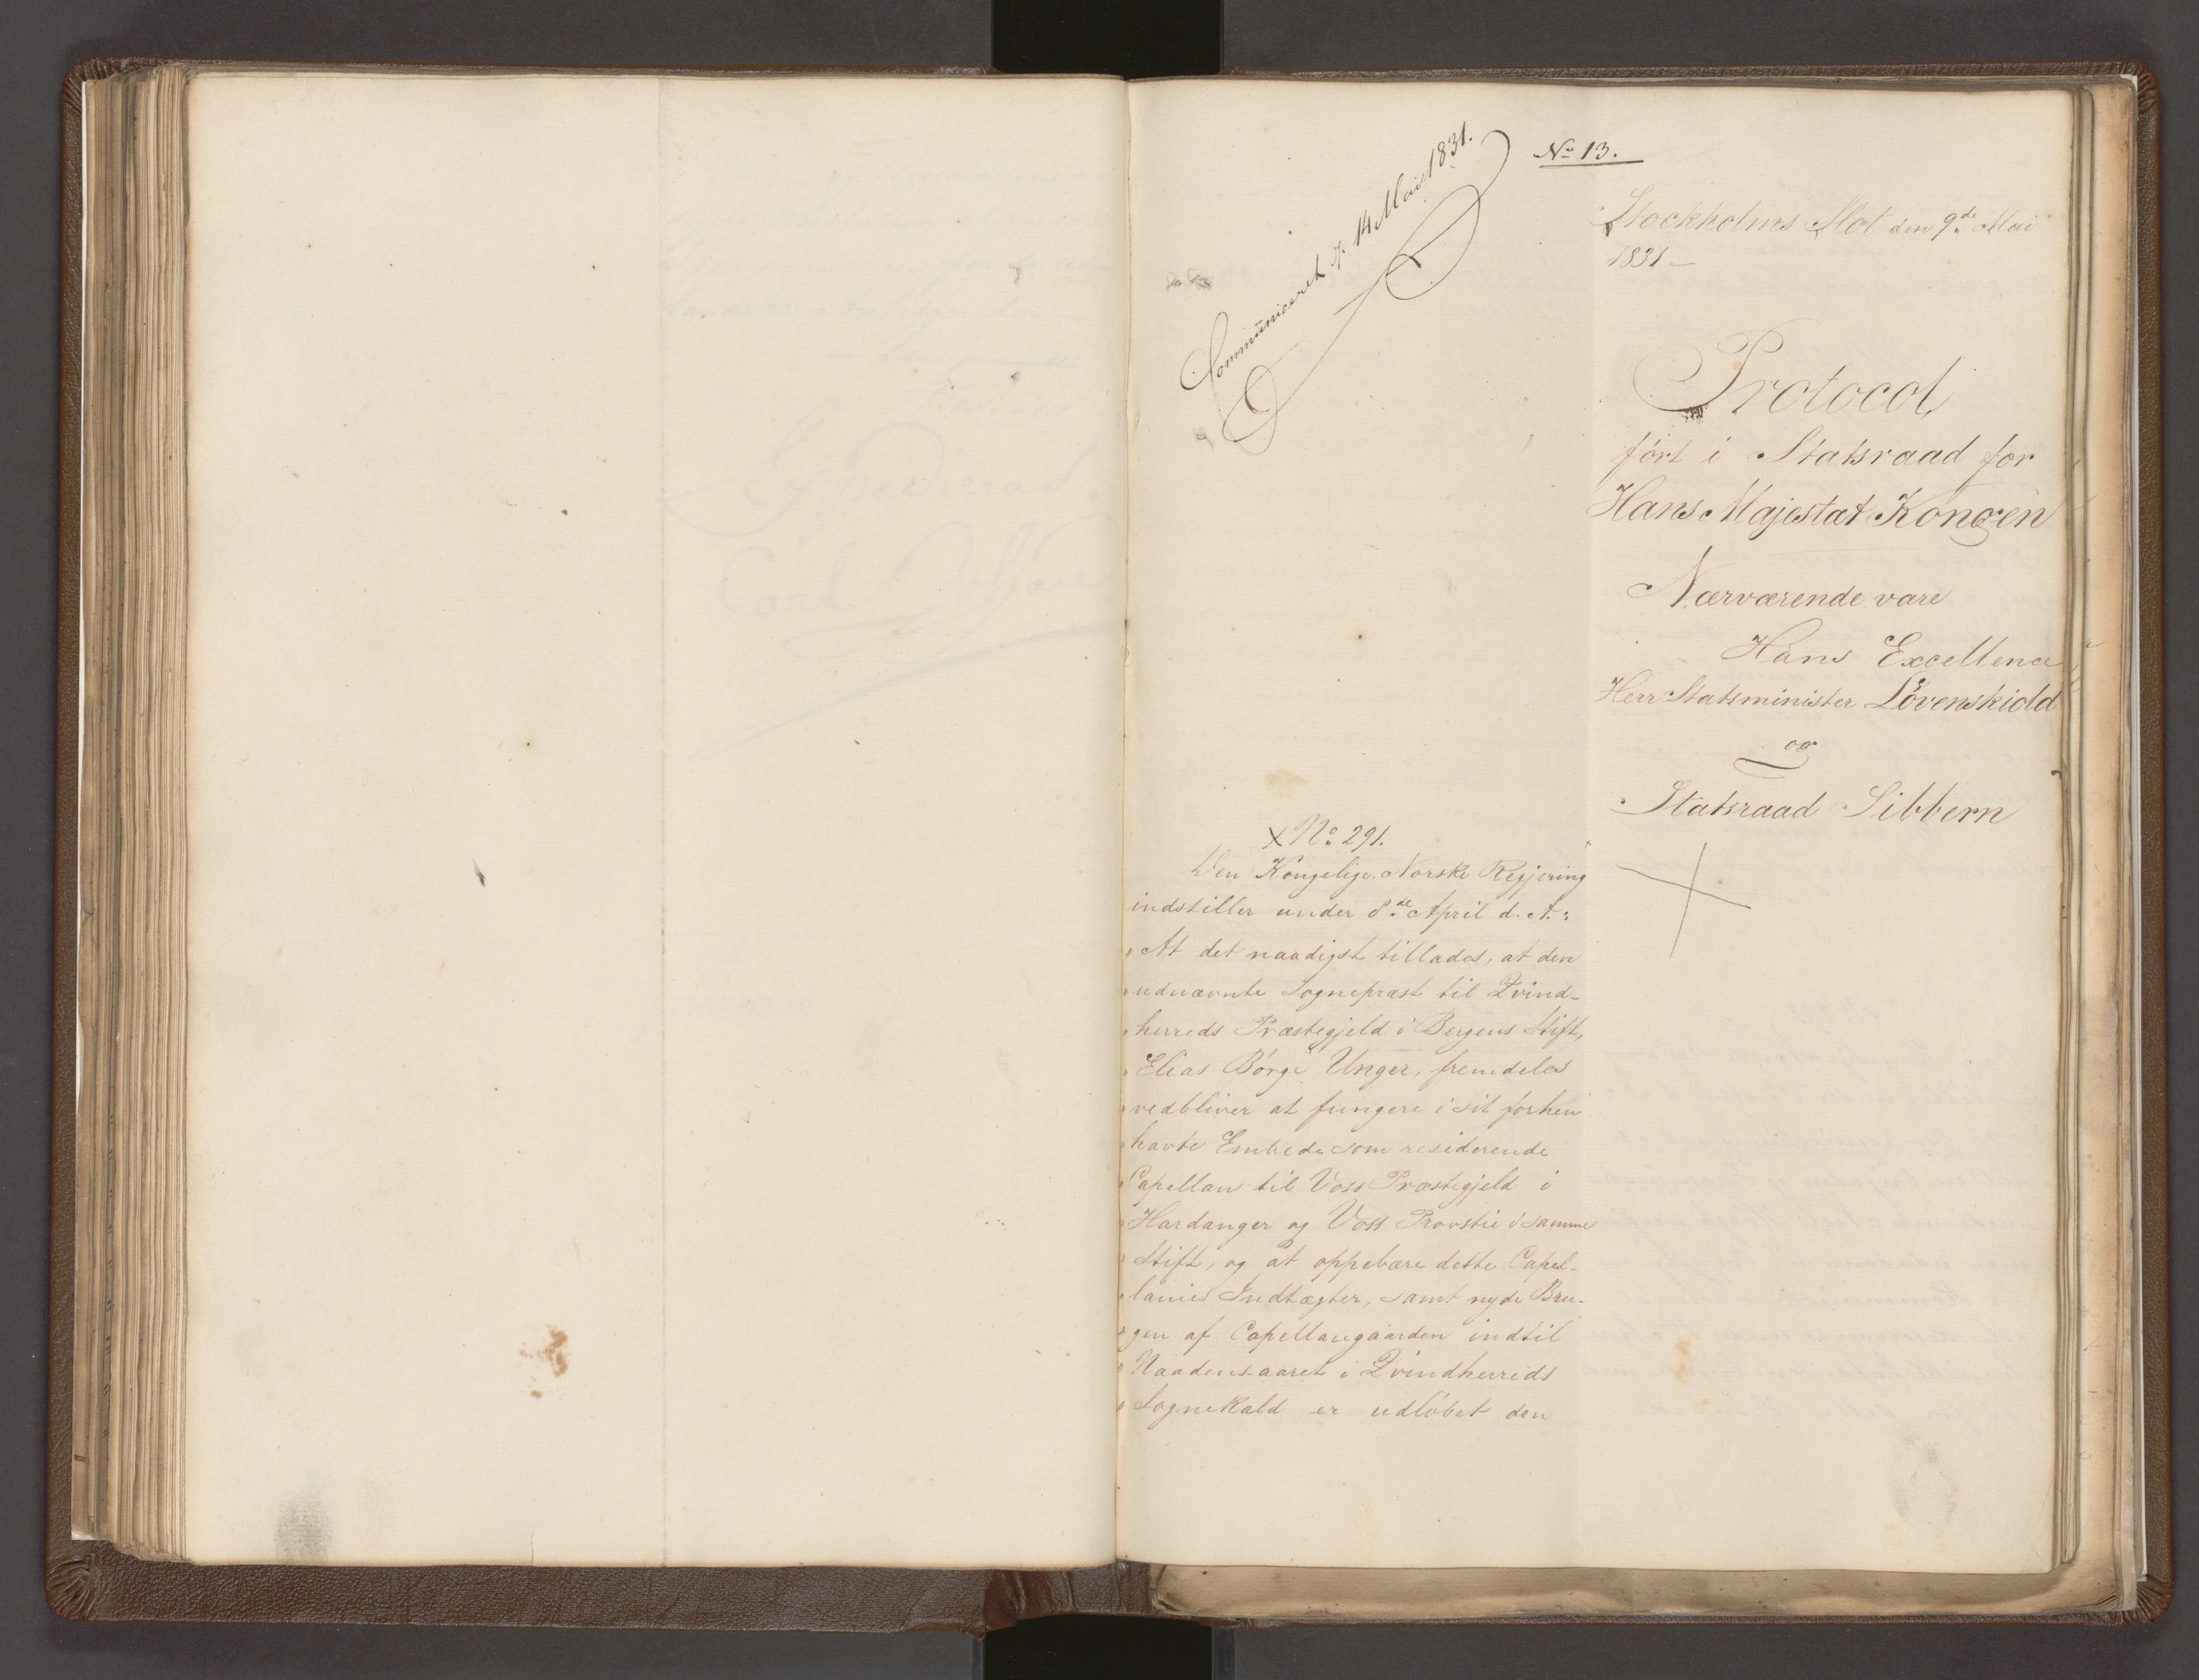 Communiceret d. 14 Mai 1831.
No 13.
Stockholms Slot den 9de Mai
1831 —
Protocol
ført i Statsraad for
Hans Majestæt Kongen
Nærværende vare
Hans Excellence
Herr Statsminister Løvenskiold
og
Statsraad Sibbern
No 291.
Den Kongelige Norske Regjering
indstiller under 8de April d. A.:
"At det naadigst tillades, at den
"udnævnte Sognepræst til Qvind-
"herreds Præstegjeld i Bergens Stift,
"Elias Børge Unger, fremdeles
"vedbliver at fungere i sit forhen
"havte Embede som residerende
"Capellan til Voss Præstegjeld i
"Hardanger og Voss Provstie i samme
"Stift, og at oppebære dette Capel-
"lanies Indtægter, samt nyde Bru-
"gen af Capellangaarden indtil
"Naadensaaret i Qvindherreds
"Sognekald er udløbet den